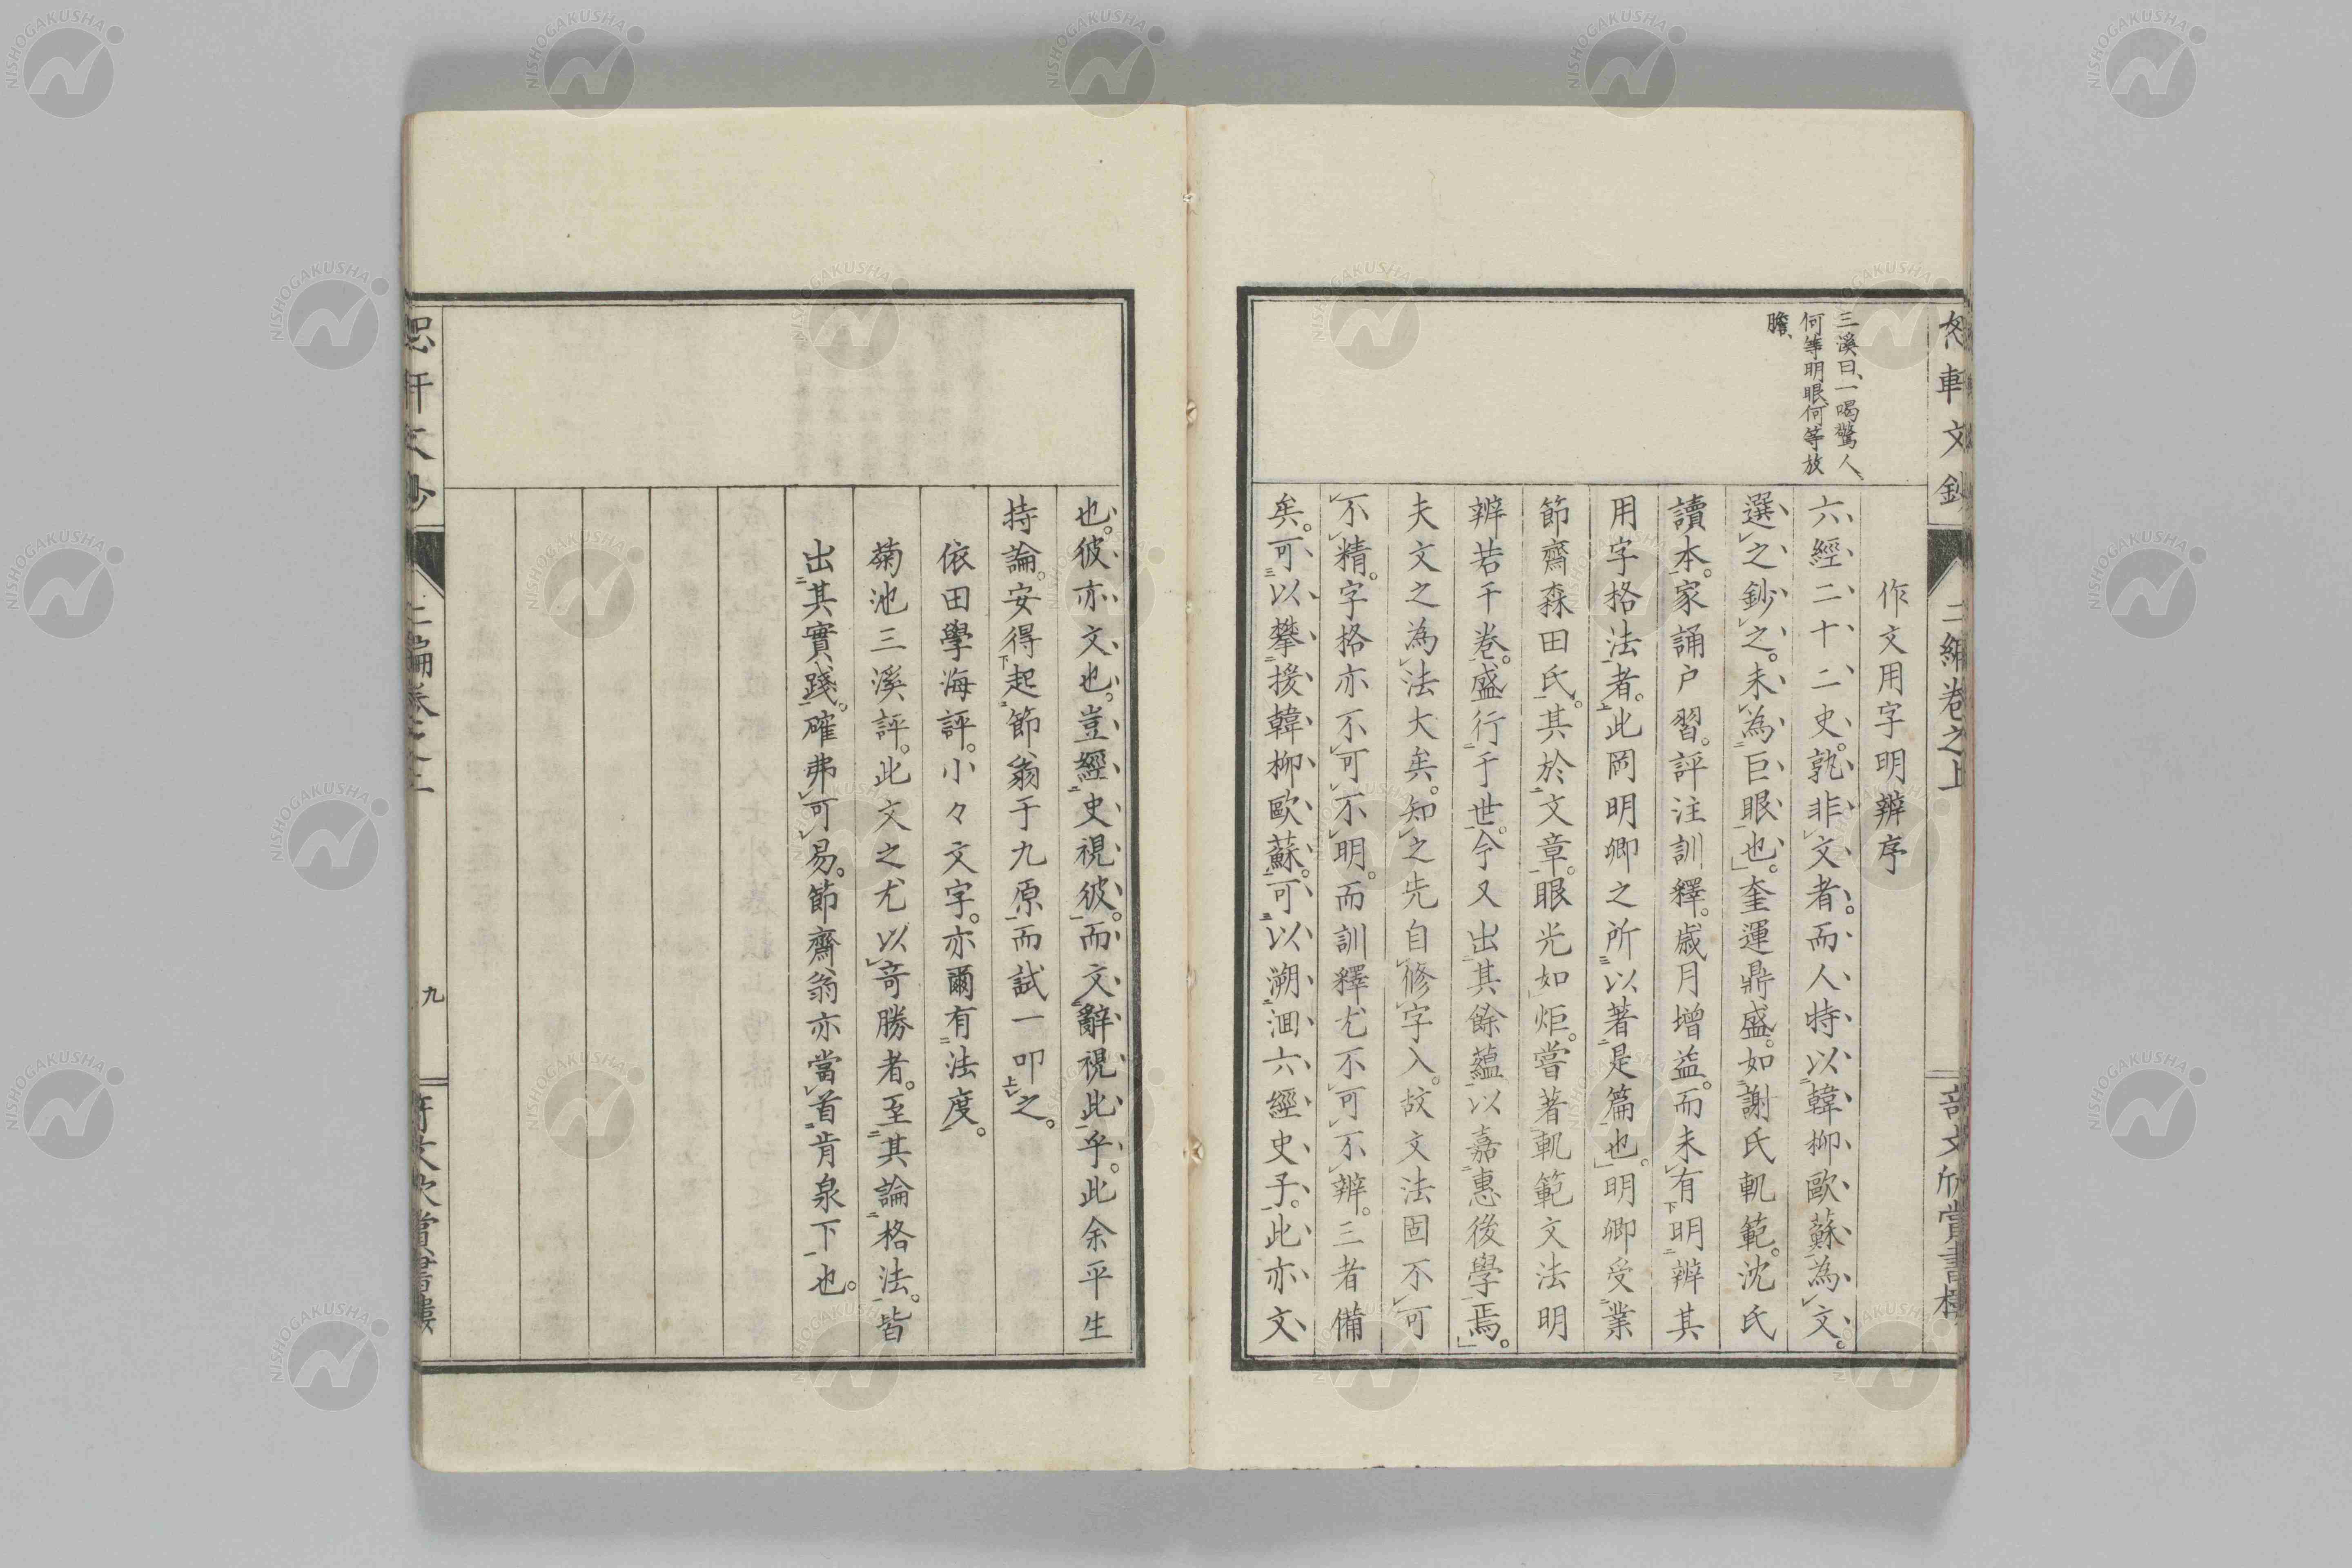 恕軒文鈔
二編卷之上
奇文欣賞書樓
三溪曰、一喝驚人、
何等明眼、何等放
膽、
作文用字明辨序
六經二十二史。孰非文者。而人特以韓柳歐蘇為文。
選之鈔之。未為巨眼也。奎運鼎盛。如謝氏軌範。沈氏
讀本。家誦戶習。評注訓釋。歲月增益。而未有明辨其
用字格法者。此岡明卿之所以著是篇也。明卿受業
節齋森田氏。其於文章。眼光如炬。嘗著軌範文法明
辨若干卷。盛行于世。今又出其餘蘊以嘉惠後學焉。
夫文之為法大矣。知之先自修字入。故文法固不可
不精。字格亦不可不明。而訓釋尤不可不辨。三者備
矣。可以攀援韓柳歐蘇。可以溯洄六經史子。此亦文
也。彼亦文也。豈經史視彼。而文辭視此乎。此余平生
持論。安得起節翁于九原而試一叩之。
依田學海評。小々文字。亦爾有法度。
菊池三溪評。此文之尤以奇勝者。至其論格法。皆
出其實踐。確弗可易。節齋翁亦當首肯泉下也。
恕軒文鈔
二編卷之上
九
奇文欣賞書樓
NISHOGAKUSHA